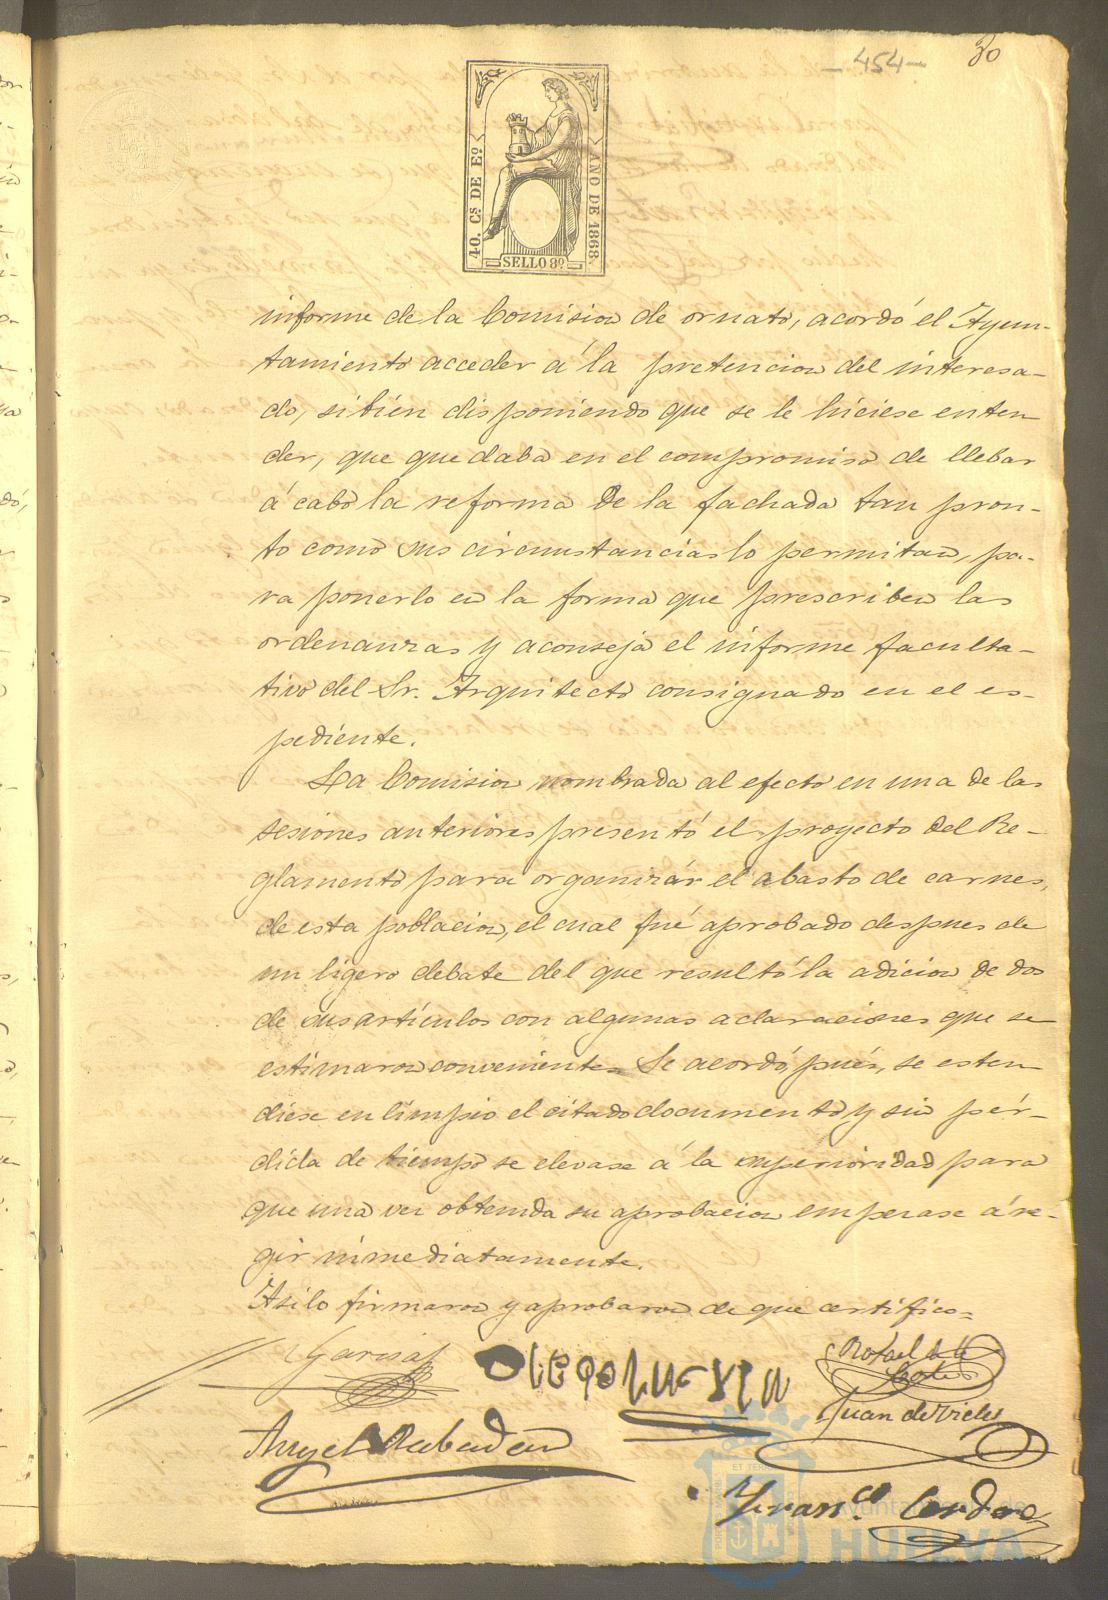 - 454 -
30
40. Cs DE Eº
AÑO DE 1868
SELLO 8º
informe de la Comision de ornato, acordó el Ayun-
tamiento acceder á la pretencion del interesa-
do, si bién disponiendo que se le hiciese enten
der, que quedaba en el compromiso de llebar
á cabo la reforma de la fachada tan pron-
to como sus circunstancias lo permitan, pa-
ra ponerlo en la forma que prescriben las
ordenanzas y aconseja el informe faculta-
tivo del Sr. Arquitecto consignado en el es-
pediente.
La Comision nombrada al efecto en una de las
sesiones anteriores presentó el proyecto del Re-
glamento para organizár el abasto de carnes,
de esta poblacion, el cual fué aprobado despues de
un ligero debate del que resultó la adicion de dos
de sus artículos con algunas aclaraciones que se
estimaron convenientes. Se acordó, pués, se esten
diese en límpio el citado documento y sin pér-
dida de tiempo se elevase á la superioridad para
que una vez obtenida su aprobacion empezase á re-
gir inmediatamente.
Asi lo firmaron y aprobaron de que certifico=
Garcia
Rafael de la
Corte
Juan de Vides
Angel Rabadan
Franco. Cordero
Ayuntamiento de
HUELVA